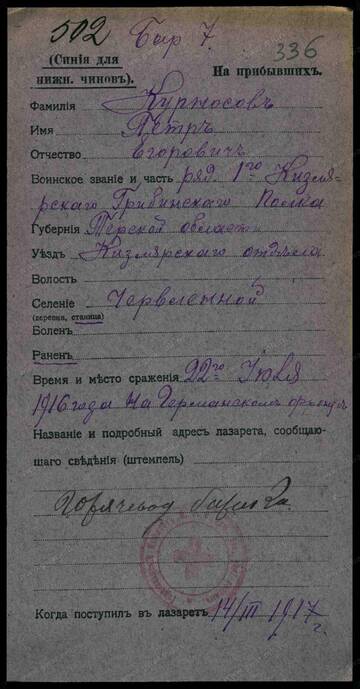 502 Бар 7.
336
(Синія для
нижн. чиновъ).
На прибывшихъ.
Фамилія Курносовъ
Имя Петръ
Отчество Егоровичъ
Воинское званіе и часть ряд. 1го Кизля-
рскаго Гребинскаго Полка
Губернія Терской области
Уѣздъ Кизлярскаго отдѣла
Волость
Селеніе Червленной
(деревня, станица)
Боленъ
Раненъ
Время и мѣсто сраженія 22го Июля
1916 года на Германскомъ фронтѣ
Названіе и подробный адресъ лазарета, сообщаю-
щаго свѣдѣнія (штемпель)
Горячевод
Когда поступилъ въ лазаретъ 14/III 1917 г.